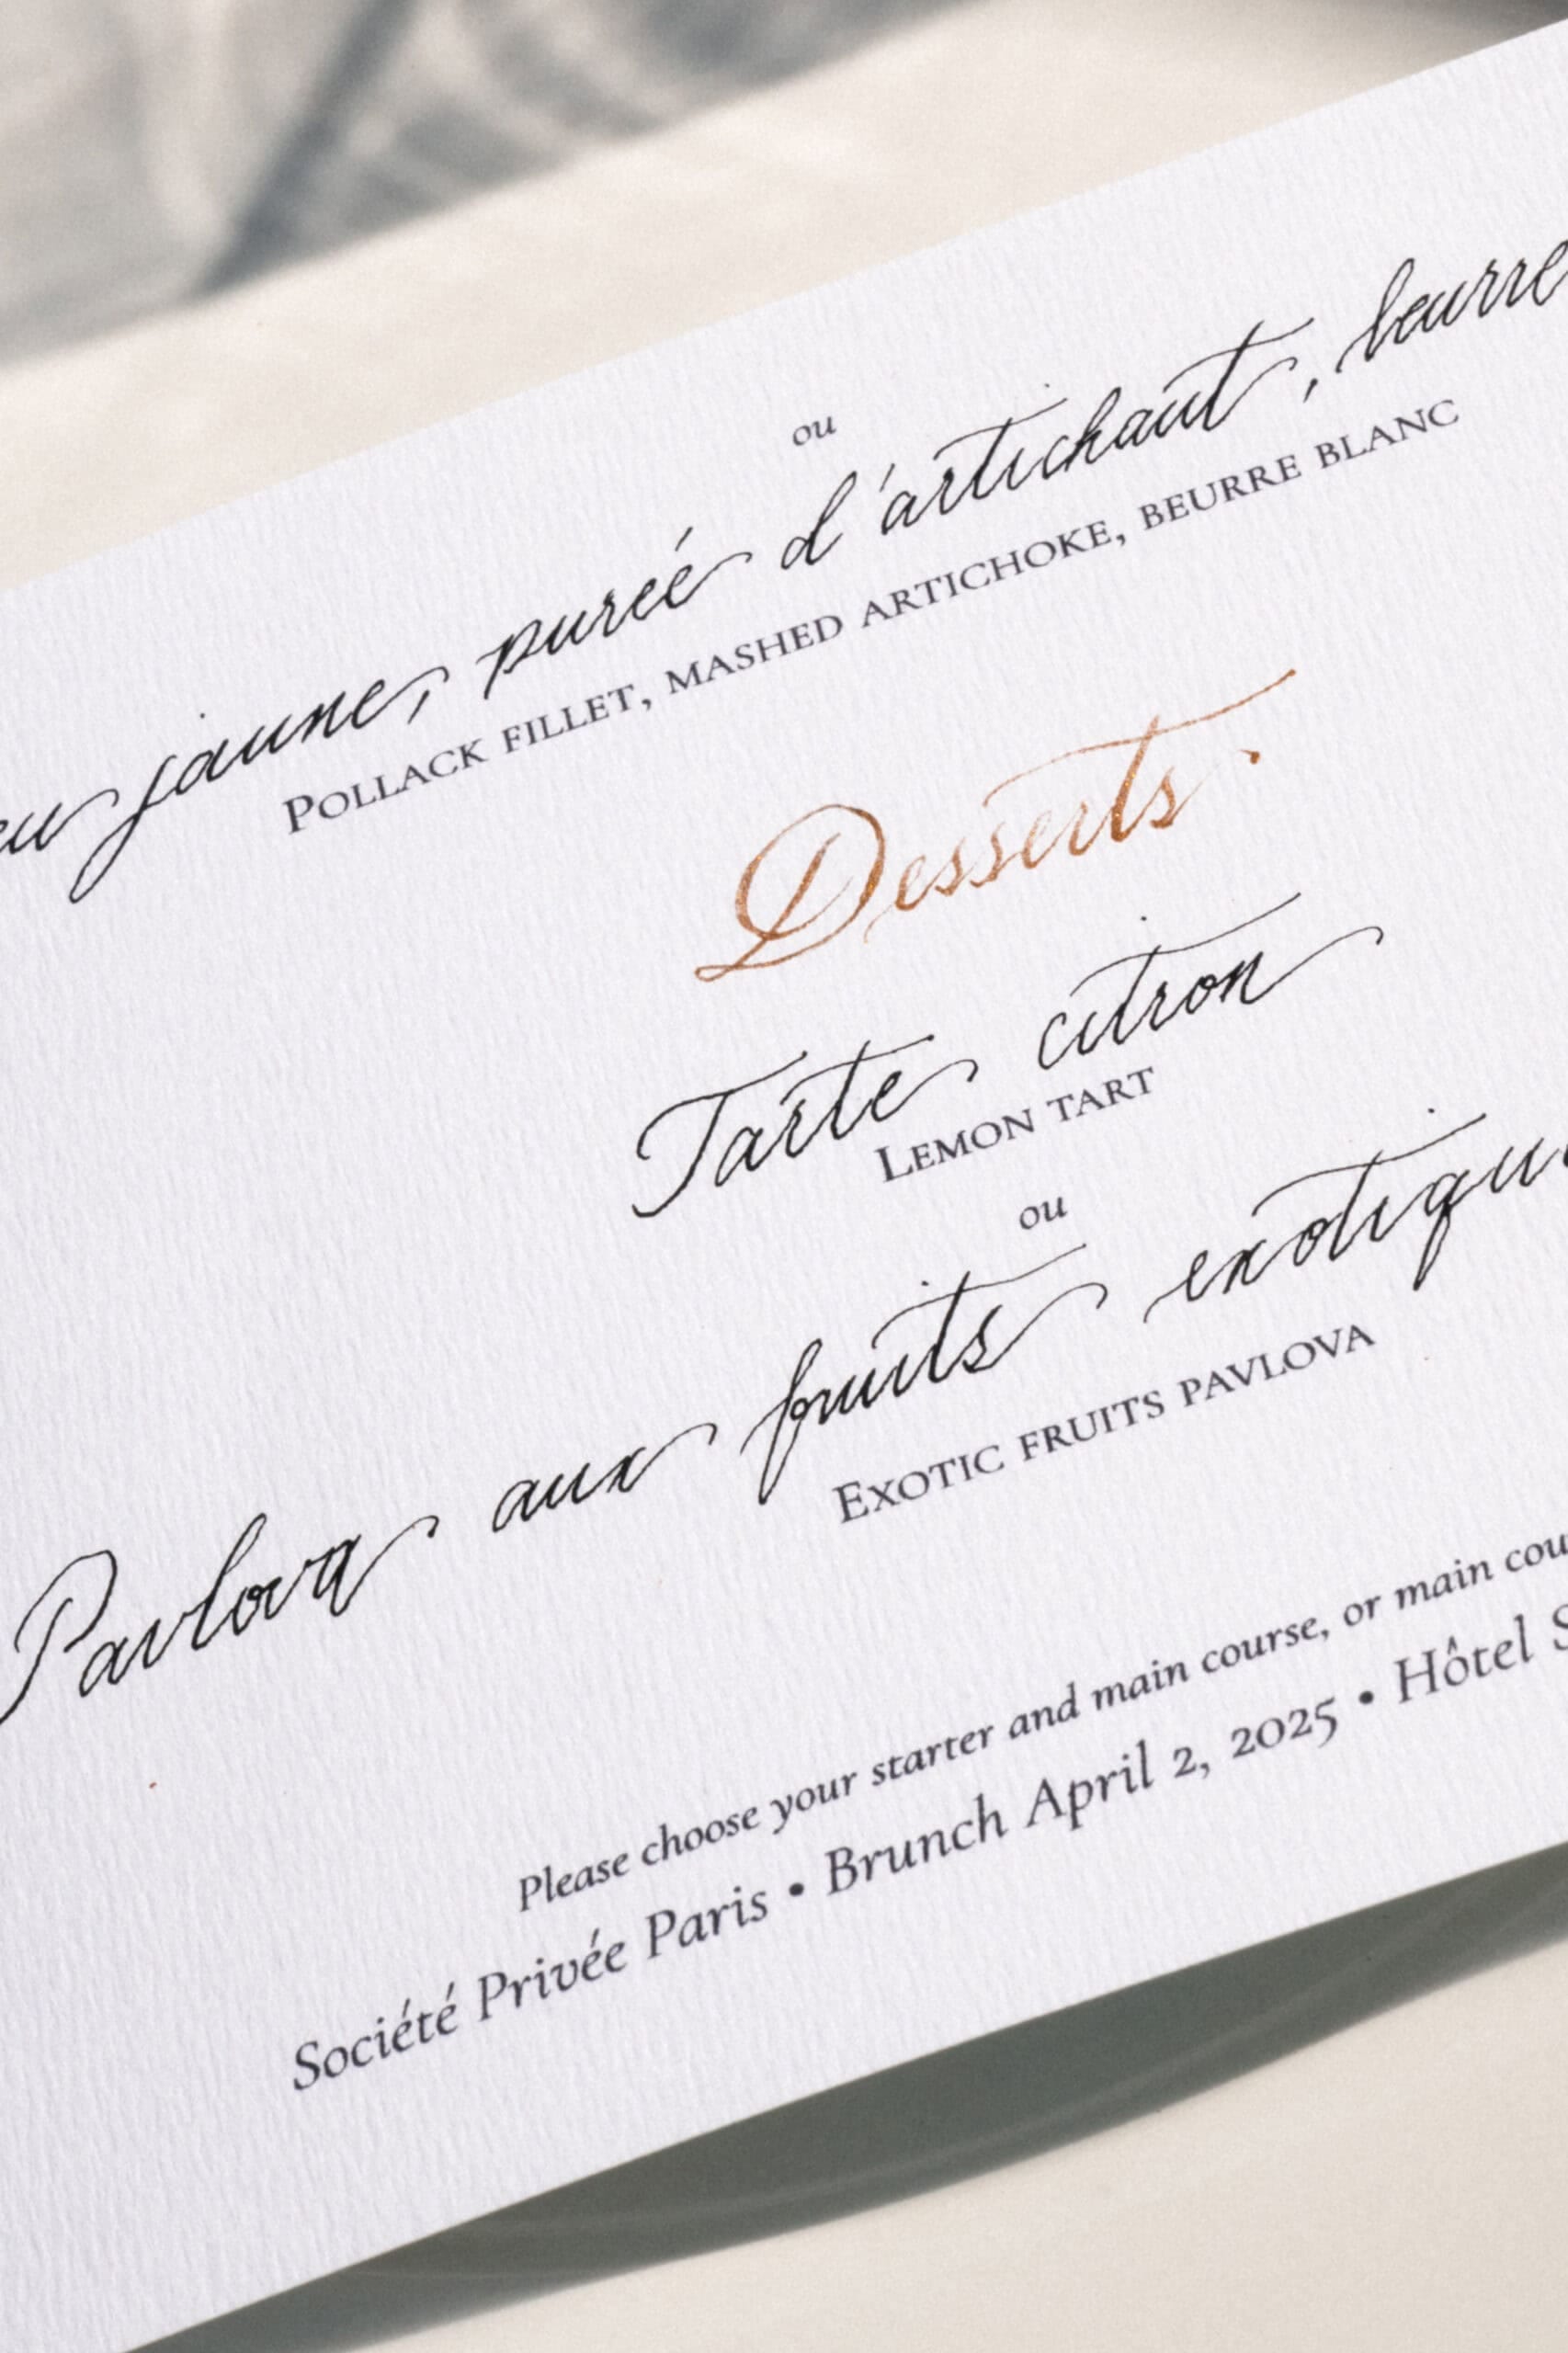 ou
jaune, purée d'artichaut, beurre
Pollack fillet, mashed artichoke, beurre blanc
Desserts
Tarte citron
Lemon tart
ou
Pavlova aux fruits
Exotic fruits pavlova
Please choose your starter and main course, or main
Société Privée Paris • Brunch April 2, 2025 • Hôtel